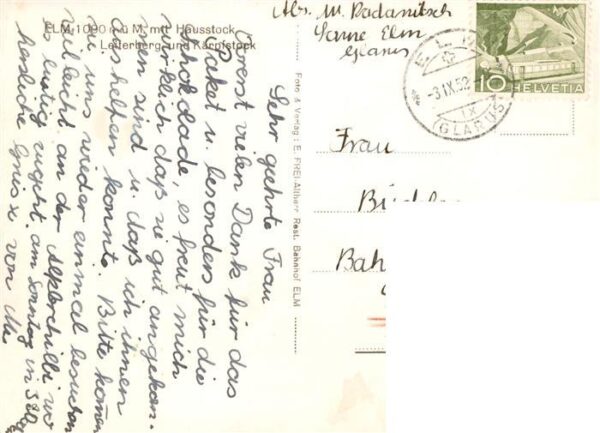 ELM 1000 m ü M, mit Hausstock,
Leiterberg und Kärpfstock
Abs. M. Radanitsch
Sonne Elm
Glarus
HELVETIA
10
ELM
-3.IX.52
IX
(GLARUS)
Foto & Verlag: E. FREI-Altherr Rest. Bahnhof ELM
Frau
Bah
Sehr gehrte Frau
Vorerst vielen Dank für das
Paket u. besonders für die
Schokolade, es freut mich
wirklich daß sie gut angekom-
men sind u. daß ich ihnen
das helfen konnte. Bitte kommen
zu uns wieder einmal besuchen
vielleicht an der Älplerchilbi wo
es lustig zugeht. am Sonntag in
herzliche Grüsse von